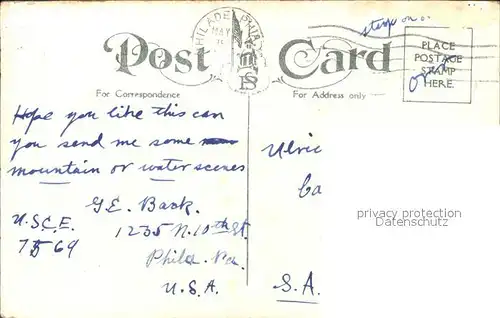 PHILADELPHIA
MAY
stamp on o.
Post Card
PLACE
POSTAGE
STAMP
HERE.
For Correspondence
For Address only
Hope you like this can
you send me some
mountain or water scenes
G.E. Back.
U.S.C.E.
7569
1235 N. 10th St.
Phila. Pa.
U.S.A.
Ulric
Ca
privacy protection
Datenschutz
S.A.